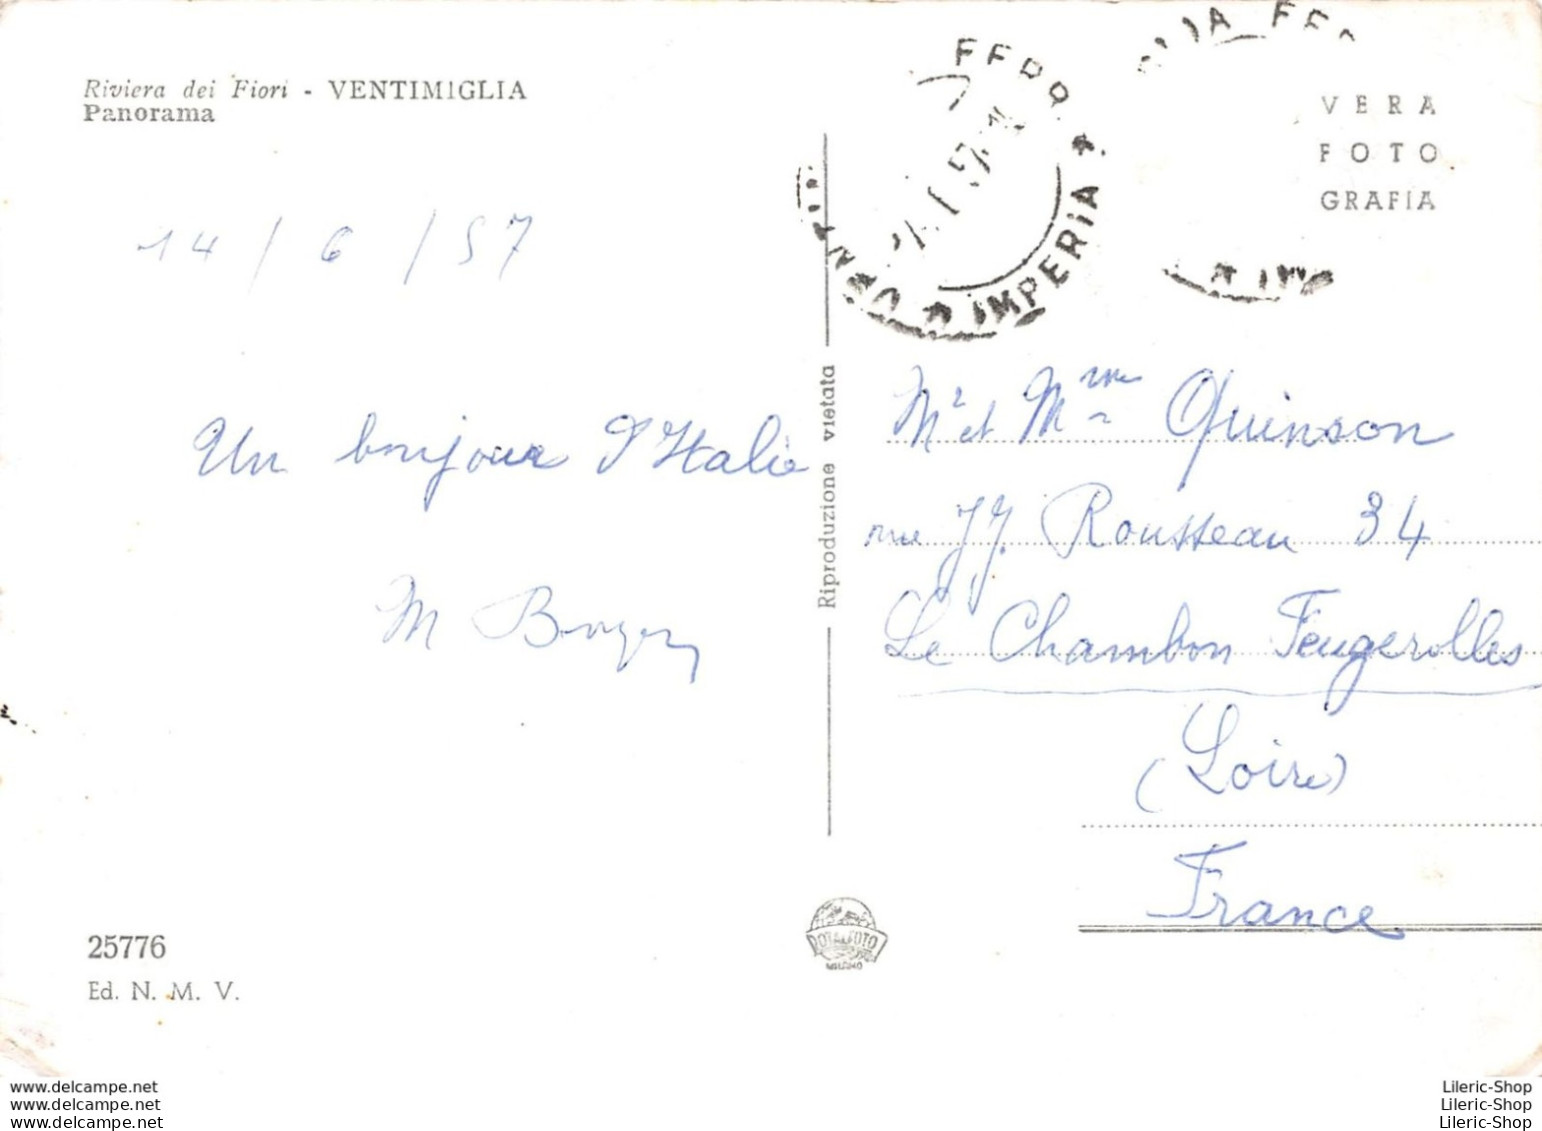 Riviera dei Fiori - VENTIMIGLIA
Panorama
VERA
FOTO
GRAFIA
IMPERIA
14 / 6 / 57
Un bonjour d'Italie
Mr et Mme Quinson
rue J.J. Rousseau 34
Le Chambon Feugerolles
(Loire)
France
Riproduzione vietata
25776
Ed. N. M. V.
www.delcampe.net
www.delcampe.net
www.delcampe.net
Lileric-Shop
Lileric-Shop
Lileric-Shop